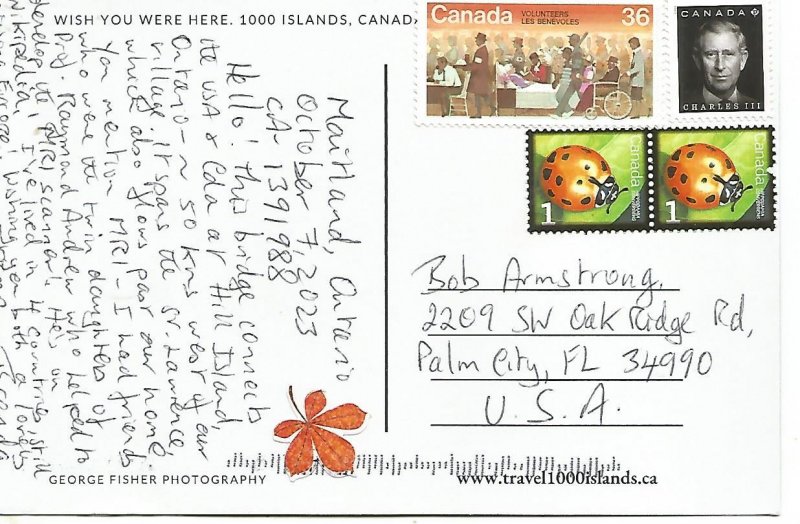 WISH YOU WERE HERE. 1000 ISLANDS, CANADA
Canada
VOLUNTEERS
LES BÉNÉVOLES
36
CANADA P
CHARLES III
1
Canada
1
Canada
Maitland, Ontario
October 7, 2023
CA-1391988
Hello! This bridge connects
the USA & Cda at Hill Island,
Ontario - ~ 50 kms west of our
village. It spans the St. Lawrence,
which also flows past our home.
You mention MRI - I had friends
who were the twin daughters of
Prof. Raymond Andrew who helped to
develop the MRI scanner! He's on
Wikipedia! I've lived in 4 countries, still
Europe! Wishing you both a lovely
Bob Armstrong,
2209 SW Oak Ridge Rd,
Palm City, FL 34990
U.S.A.
GEORGE FISHER PHOTOGRAPHY
www.travel1000islands.ca